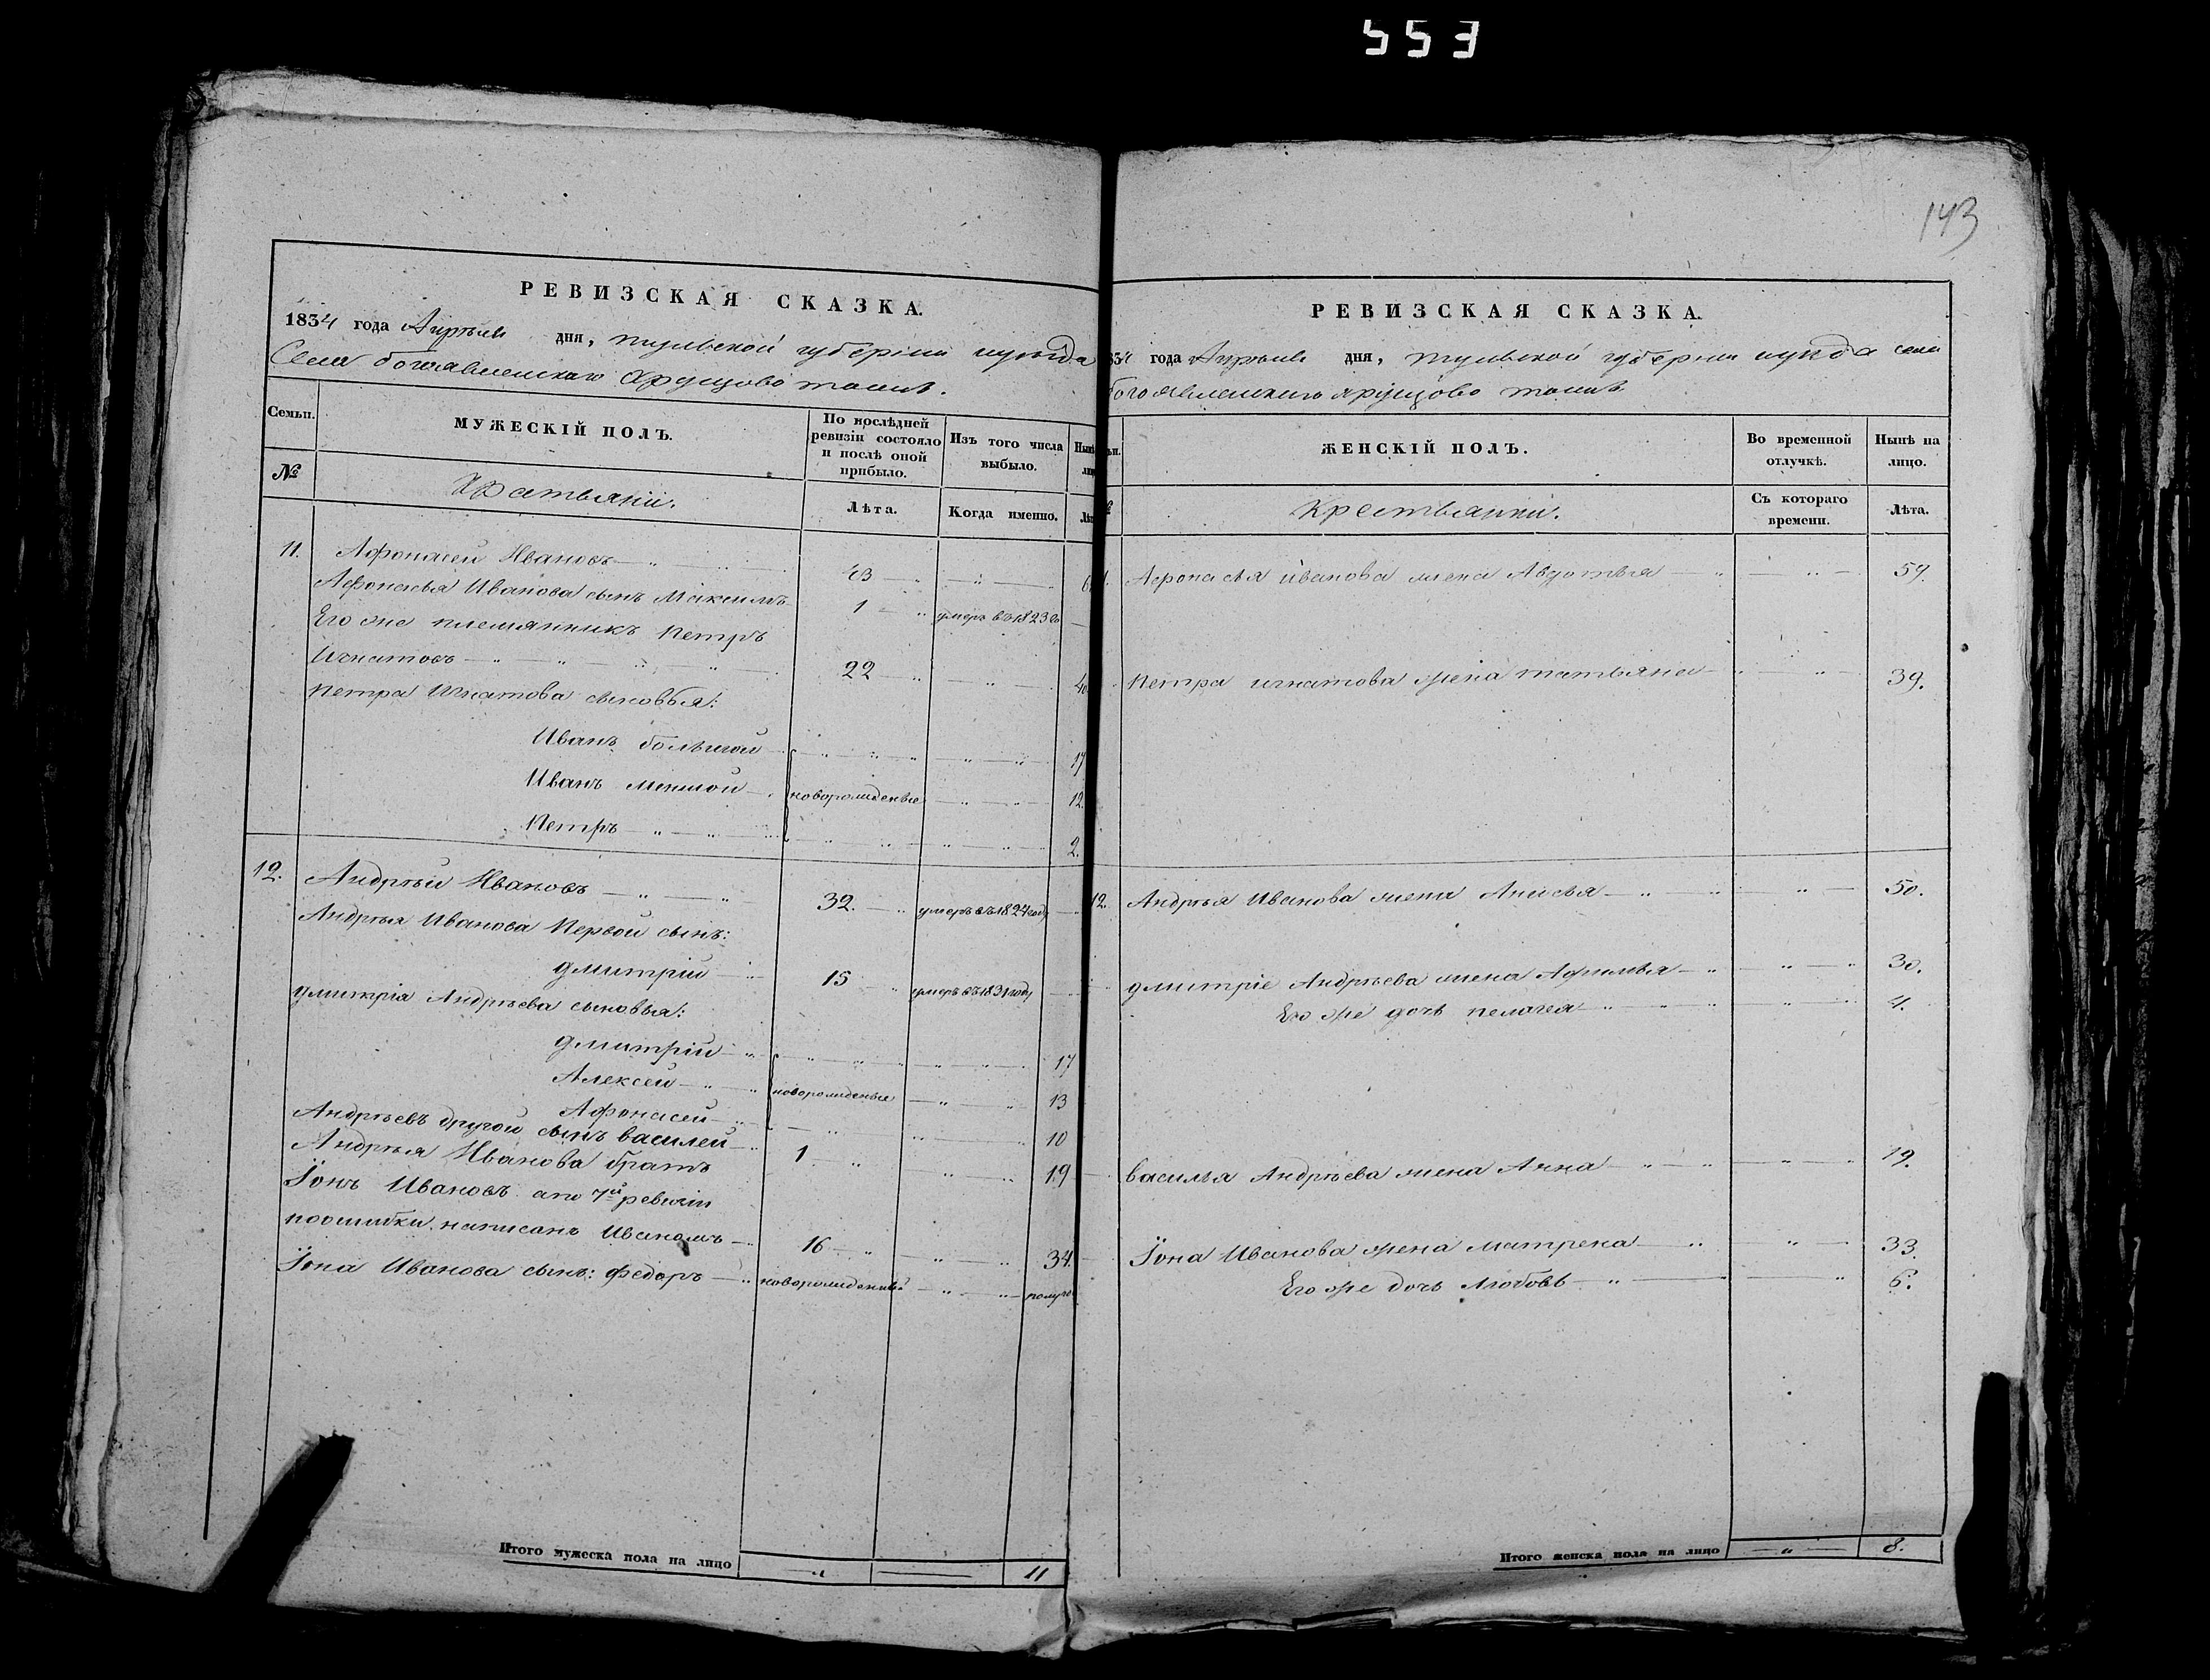 553
143
РЕВИЗСКАЯ СКАЗКА.
1834 года Апрѣля дня, тульской губерніи
Села богоявленскаго тожъ.
Семьи.
МУЖЕСКІЙ ПОЛЪ.
По послѣдней ревизіи состояло и послѣ оной прибыло.
Изъ того числа выбыло.
№
Лѣта.
Когда именно.
11. Афонасей Ивановъ 43
Афонасья Иванова сынъ Максимъ 1 умеръ въ 1823 го
Его же племянникъ Петръ
Игнатовъ 22
Петра Игнатова сыновья:
Иванъ большой 17
Иванъ меншой новорожденые 12.
Петръ 2.
12. Андрѣй Ивановъ 32. умеръ въ 1824 году
Андрѣя Иванова Первой сынъ:
дмитрій 15 умеръ въ 1831 году
дмитрія Андрѣева сыновья:
дмитрій 17
Алексей новорожденые 13
Афонасей 10
Андрѣевъ другой сынъ василей 1 19
Андрѣя Иванова братъ
Іонъ Ивановъ а по 7й ревизіи
поошибки написанъ Иваномъ 16 34.
Іона Иванова сынъ: Федоръ новорожденый
Итого мужеска пола на лицо 11
РЕВИЗСКАЯ СКАЗКА.
года Апрѣля дня, тульской губерніи села
тожъ
ЖЕНСКІЙ ПОЛЪ.
Во временной отлучкѣ.
Нынѣ на лицо.
Крестьянки.
Съ котораго времени.
Лѣта.
Афонасья иванова жена Авдотья 59.
Петра игнатова жена татьяна 39.
12. Андрѣя Иванова жена Анисья 50.
дмитріе Андрѣева жена Афимья 30.
Его же дочь пелагея 4.
василья Андрѣева жена Анна 19.
Іона Иванова жена матрена 33.
Его же дочь Любовь 6.
Итого женска пола на лицо 8.